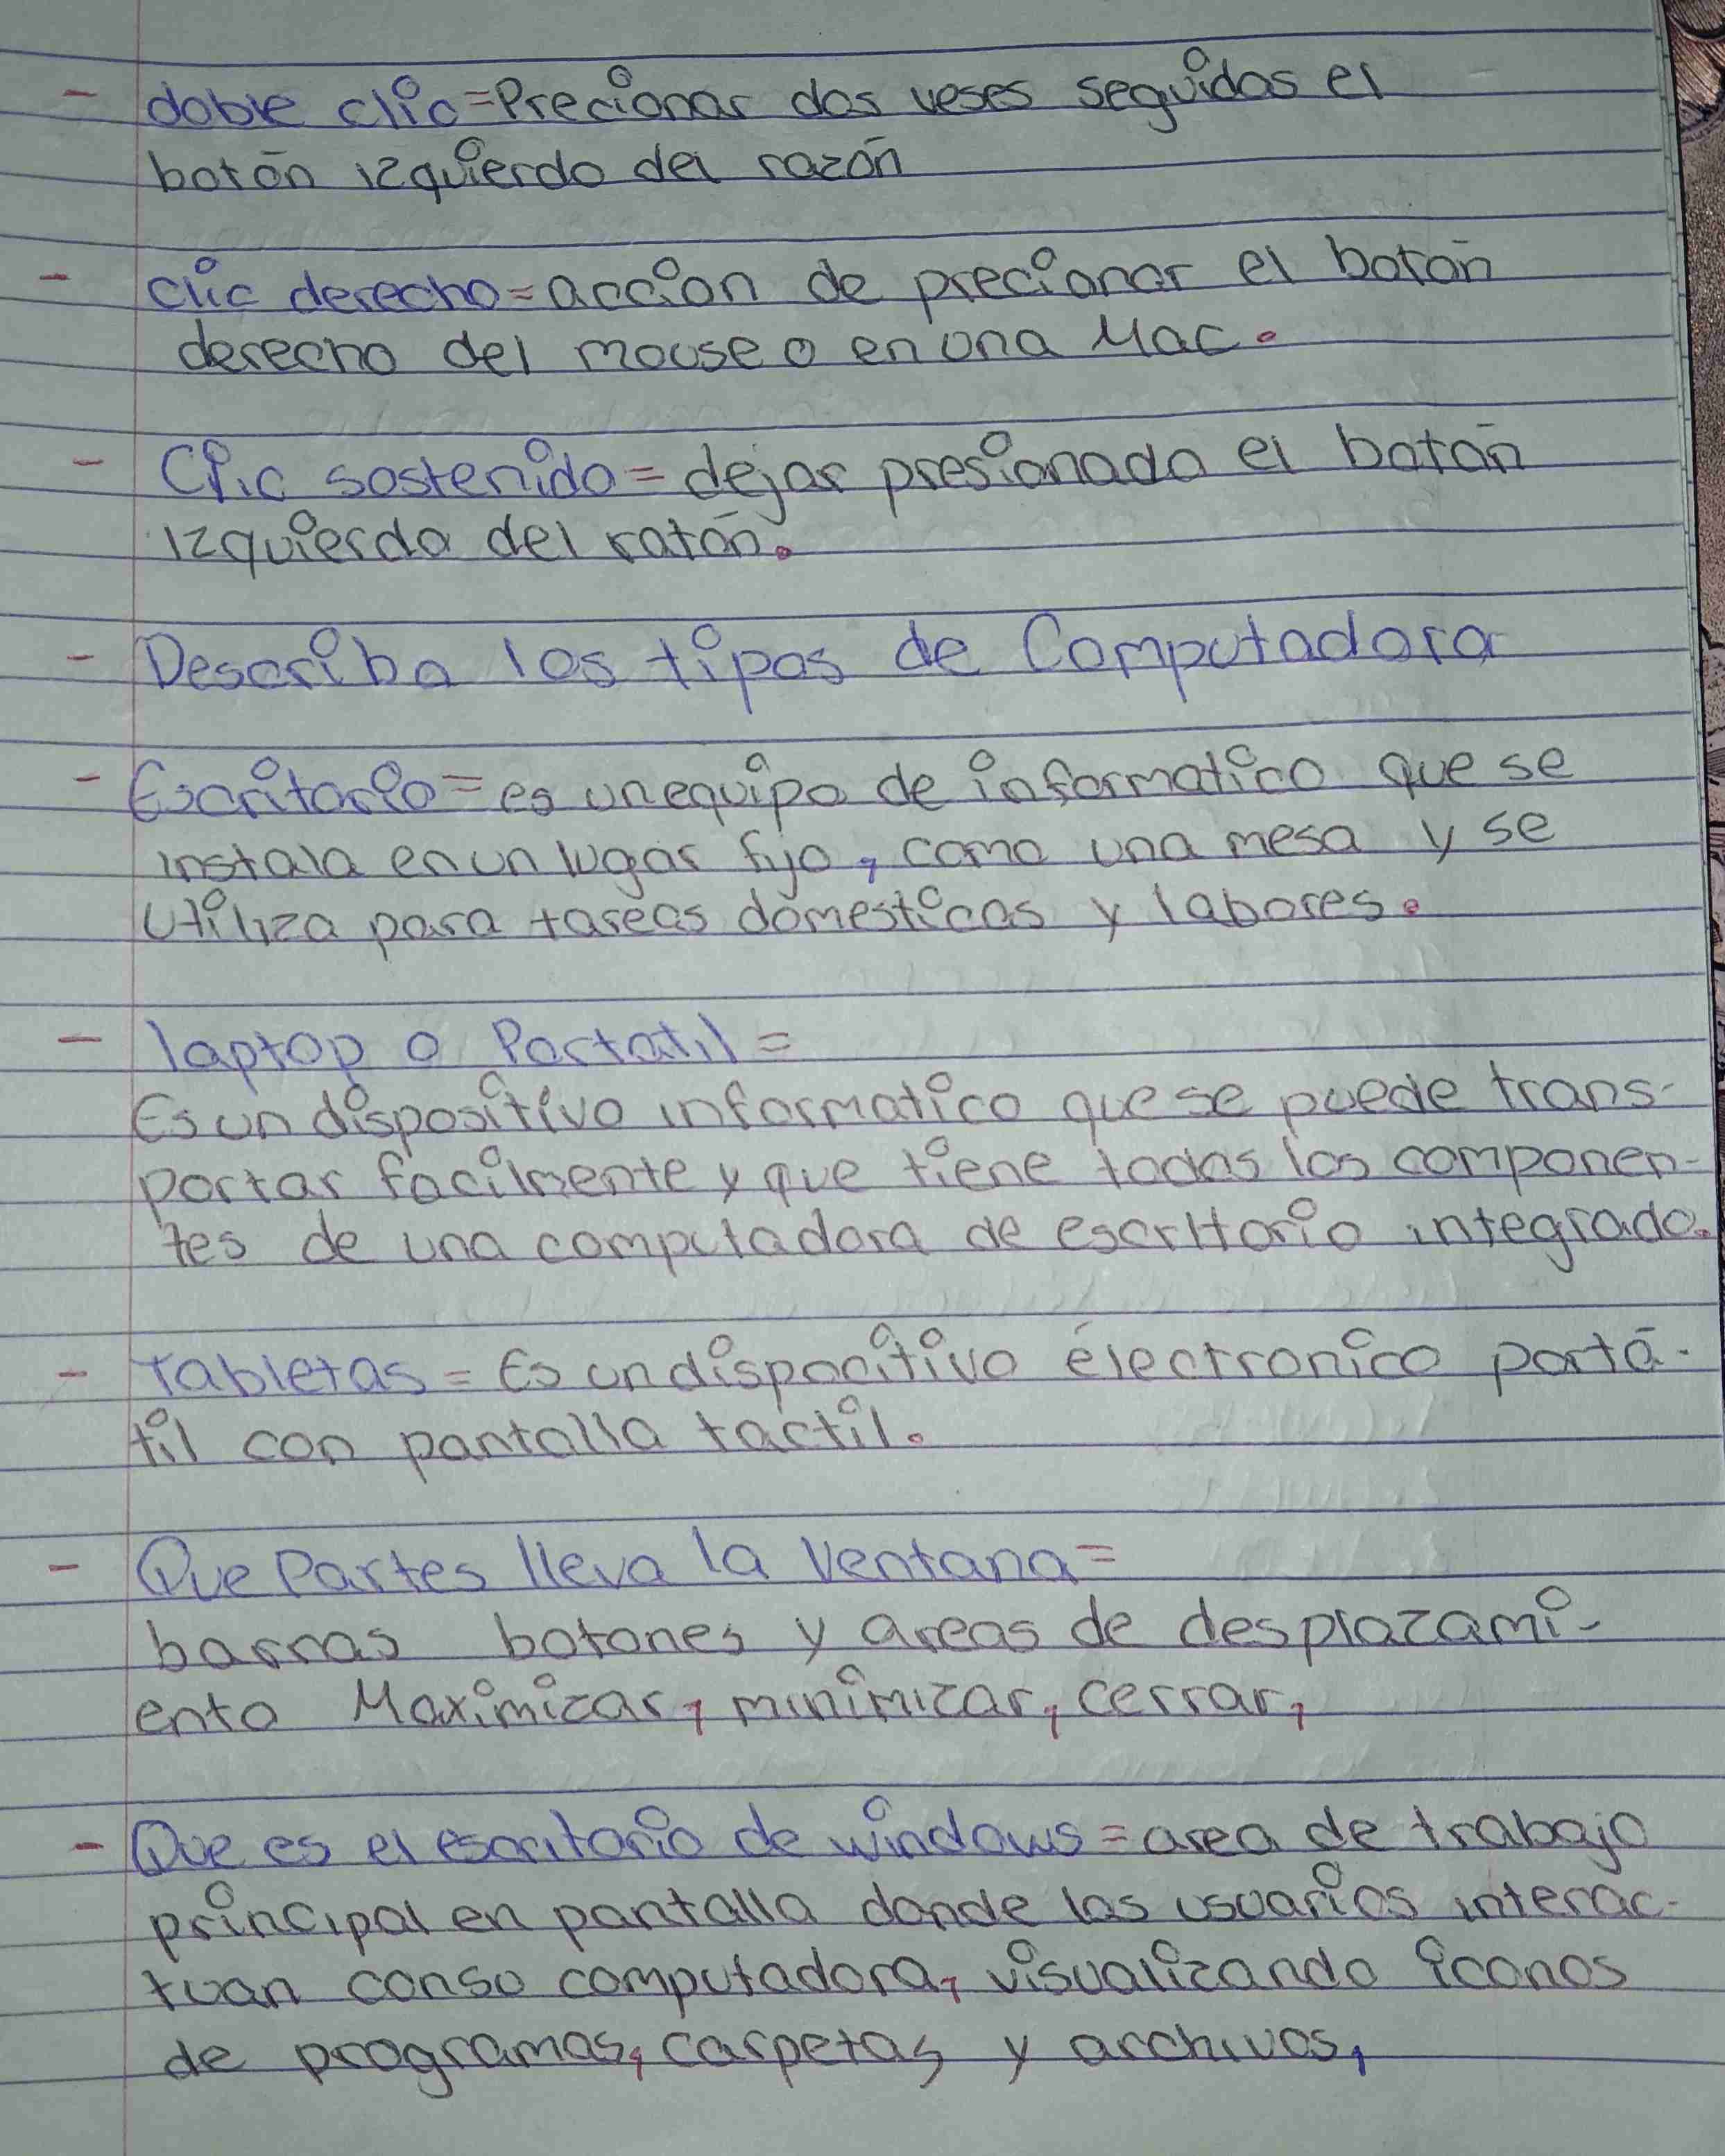 - doble clic = Precionar dos veses seguidos el
botón izquierdo del razón
- clic derecho = accion de precionar el botón
derecho del mouse o en una Mac.
- Clic sostenido = dejar presionado el botón
izquierdo del ratón.
- Describa los tipos de Computadora
- Escritorio = es un equipo de informatico que se
instala en un lugar fijo, como una mesa y se
utiliza para tareas domesticas y labores.
- laptop o Portatil =
Es un dispositivo informatico que se puede trans-
portar facilmente y que tiene todos los componen-
tes de una computadora de escritorio integrado.
- Tabletas = Es un dispocitivo électronico portá-
til con pantalla tactil.
- Que Partes lleva la Ventana =
barras botones y areas de desplazami-
ento Maximizar, minimizar, cerrar,
- Que es el escritorio de windows = area de trabajo
principal en pantalla donde los usuarios interac-
tuan con su computadora, visualizando iconos
de programas, carpetas y archivos,